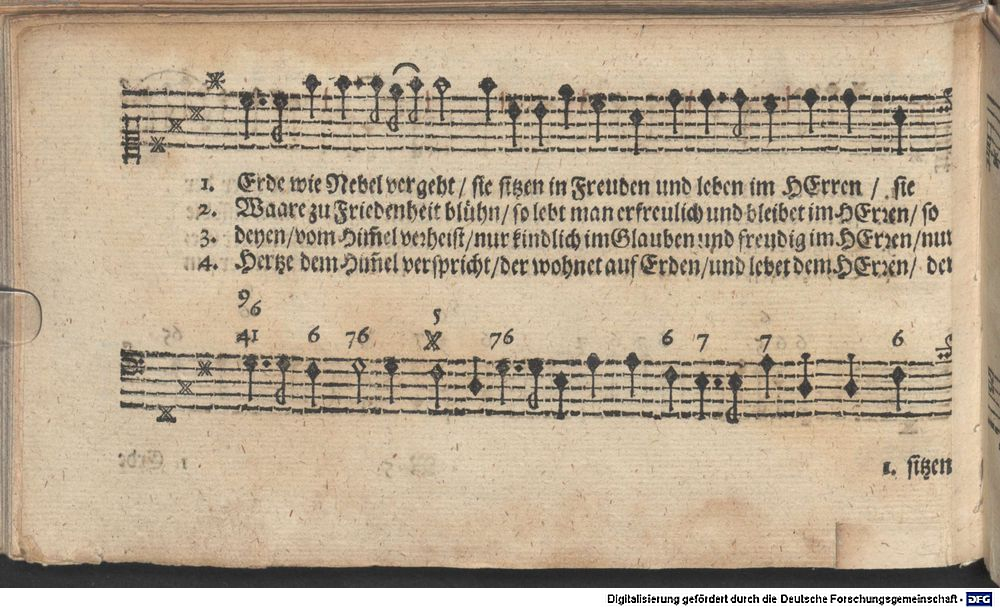 1. Erde wie Nebel vergeht / sie sitzen in Freuden und leben im HErren / sie
2. Waare zu Friedenheit blühn / so lebt man erfreulich und bleibet im HErren / so
3. denen / vom Him̃el verheist / nur kindlich im Glauben und freudig im HErren / nur
4. Hertze dem Him̃el verspricht / der wohnet auf Erden / und lebet dem HErren / der
9 6 5
41 6 76 76 6 7 7 6
1. sitzen
Digitalisierung gefördert durch die Deutsche Forschungsgemeinschaft - DFG